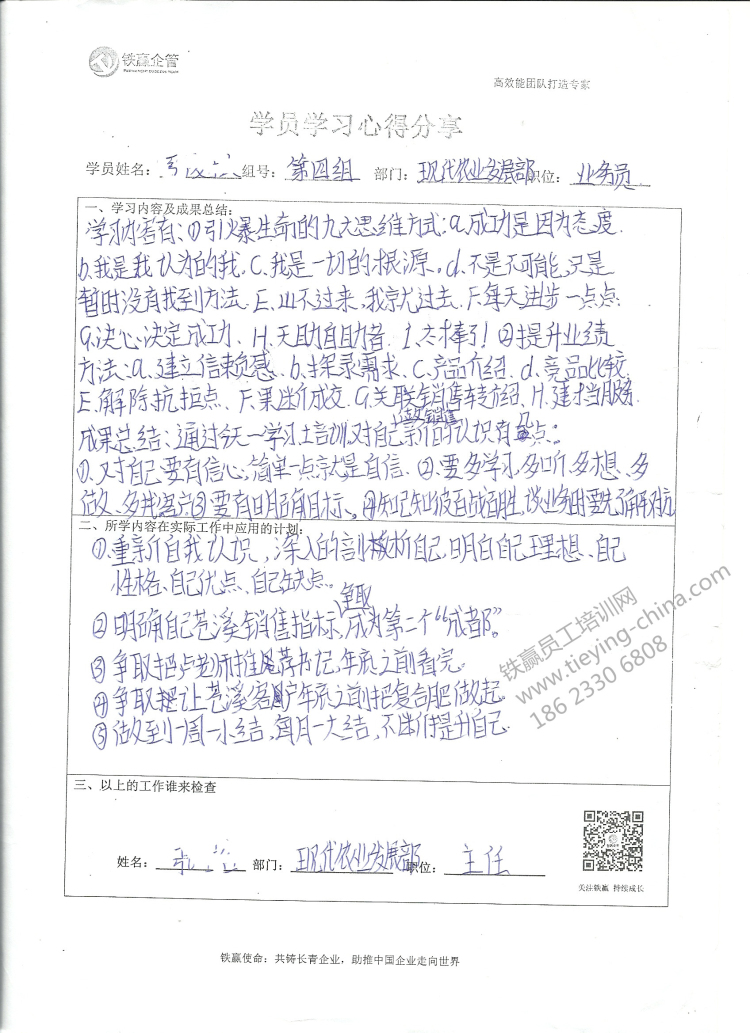 铁赢企管
高效能团队打造专家
学员学习心得分享
学员姓名： 组号：第四组 部门：现代农业发展部 职位：业务员
一、学习内容及成果总结：
学习内容有：①引爆生命的九大思维方式：a.成功是因为态度.
b.我是我认为的我. C.我是一切的根源。d.不是不可能,只是
暂时没有找到方法. E.山不过来,我就过去. F.每天进步一点点.
G.决心决定成功. H.天助自助者. I.太棒了! ②提升业绩
方法:a.建立信赖感. b.探录需求. C.产品介绍. d.竞品比较.
E.解除抗拒点. F.果断成交. G.关联销售转介绍. H.建档服务.
成果总结：通过今天一学习土培训,对自己新的认识有几点：
①.对自己要有信心,简单一点就是自信. ②.要多学习、多听、多想、多
做、多找客户③要有明确目标。④知己知彼百战百胜,谈业务时要先了解对方
二、所学内容在实际工作中应用的计划：
①.重新自我认识，深入的剖析自己,明白自己理想、自己
性格、自己优点、自己缺点。
②明确自己苍溪销售指标,争取成为第二个“成都”。
③争取把卢老师推荐书记,年底之前看完.
④争取让苍溪客户年底之前把复合肥做起.
⑤做到一周一小结,每月一大结,不断提升自己.
三、以上的工作谁来检查
姓名： 部门：现代农业发展部 职位：主任
关注铁赢 持续成长
铁赢使命：共铸长青企业，助推中国企业走向世界
铁赢员工培训网
www.tieying-china.com
186 2330 6808